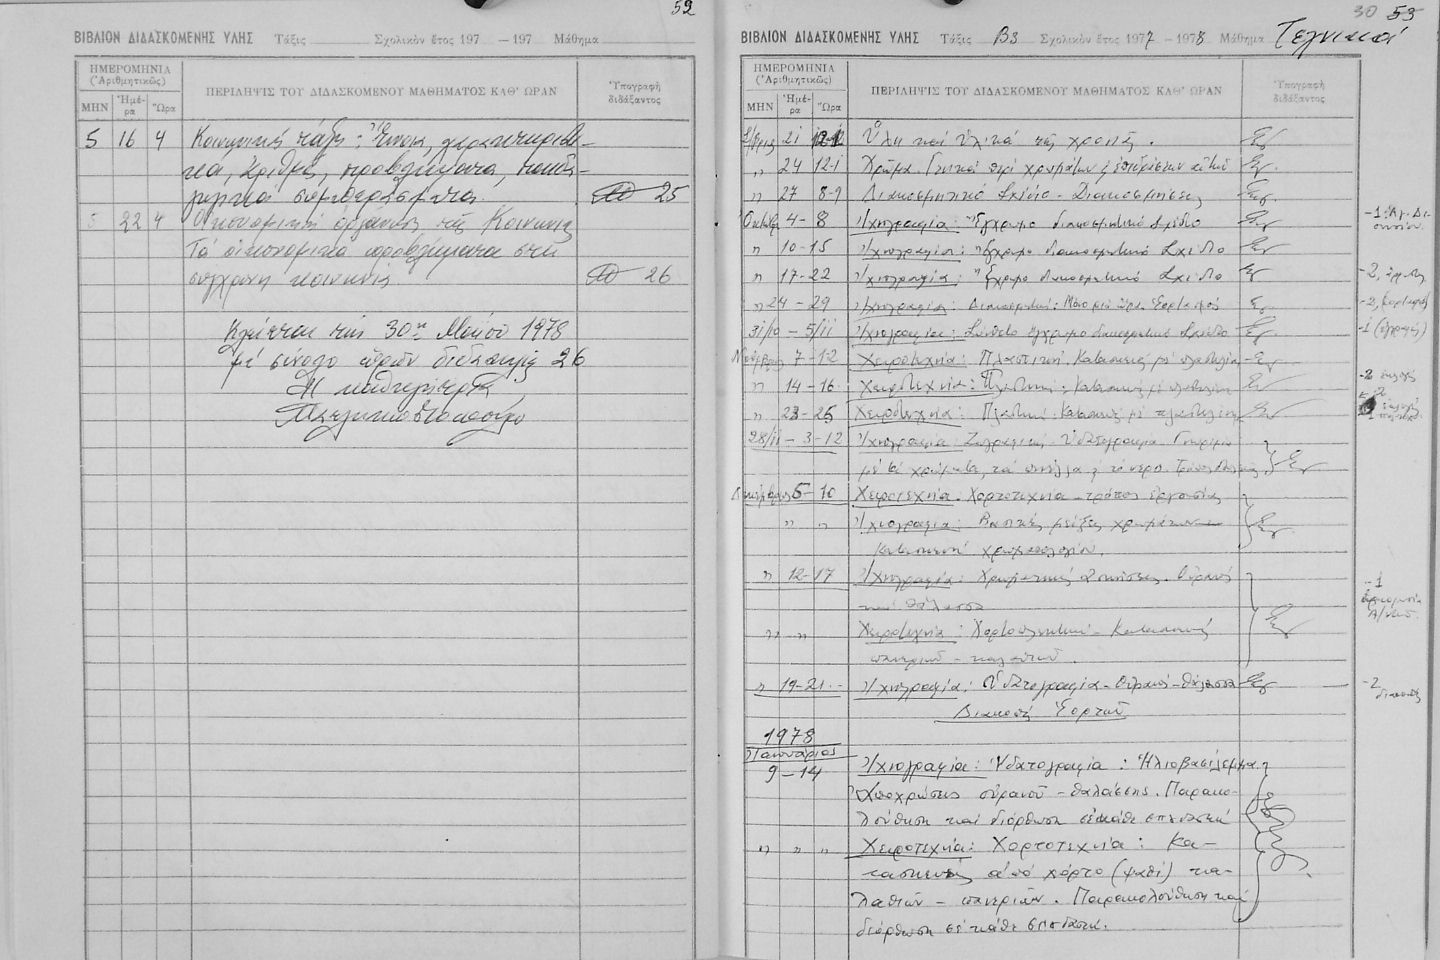 52
ΒΙΒΛΙΟΝ ΔΙΔΑΣΚΟΜΕΝΗΣ ΥΛΗΣ Τάξις Σχολικὸν ἔτος 197 -197 Μάθημα
ΗΜΕΡΟΜΗΝΙΑ
(Ἀριθμητικῶς)
ΜΗΝ Ἡμέ-ρα Ὥρα
ΠΕΡΙΛΗΨΙΣ ΤΟΥ ΔΙΔΑΣΚΟΜΕΝΟΥ ΜΑΘΗΜΑΤΟΣ ΚΑΘ' ΩΡΑΝ
Ὑπογραφὴ
διδάξαντος
5 16 4 Κοινωνικὴ τάξη: Ἔννοια, χαρακτηριστι-
κά, ἀριθμός, προβλήματα,
συμπεράσματα. 25
5 22 4 Οἰκονομικὴ ὀργάνωση τῆς Κοινωνίας
Τὰ οἰκονομικὰ προβλήματα στὴ
σύγχρονη κοινωνία. 26
Κλείεται τὴν 30ην Μαΐου 1978
μὲ σύνολο ὡρῶν διδασκαλίας 26
Ἡ καθηγήτρια
30 53
ΒΙΒΛΙΟΝ ΔΙΔΑΣΚΟΜΕΝΗΣ ΥΛΗΣ Τάξις Β3 Σχολικὸν ἔτος 1977 - 1978 Μάθημα Τεχνικά
ΗΜΕΡΟΜΗΝΙΑ
(Ἀριθμητικῶς)
ΜΗΝ Ἡμέ-ρα Ὥρα
ΠΕΡΙΛΗΨΙΣ ΤΟΥ ΔΙΔΑΣΚΟΜΕΝΟΥ ΜΑΘΗΜΑΤΟΣ ΚΑΘ' ΩΡΑΝ
Ὑπογραφὴ
διδάξαντος
21 Ὕλη καὶ ὑλικὰ τῆς χρονιᾶς.
" 24 12-1 Χρῶμα. Γενικὰ περὶ χρωμάτων
" 27 8-9 Διακοσμητικὸ Σχέδιο - Διακοσμήσεις
Ὀκτώβρ 4-8 Ἰχνογραφία: Ἔγχρωμο διακοσμητικὸ Σχέδιο
" 10-15 Ἰχνογραφία: Ἔγχρωμο διακοσμητικὸ Σχέδιο
" 17-22 Ἰχνογραφία: Ἔγχρωμο διακοσμητικὸ Σχέδιο
" 24-29 Ἰχνογραφία: Διακοσμητικό:
31/10 - 5/11 Ἰχνογραφία: Σύνθετο ἔγχρωμο διακοσμητικὸ Σχέδιο
Νοέμβριος 7-12 Χειροτεχνία: Πλαστική. Κατασκευὲς μὲ πλαστελίνη
" 14-16 Χειροτεχνία: Πλαστική: Κατασκευὲς μὲ πλαστελίνη
" 23-25 Χειροτεχνία: Πλαστική: Κατασκευὲς μὲ πλαστελίνη
28/11 - 3-12 Ἰχνογραφία: Ζωγραφική. Ὑδατογραφία. Γνωριμία
μὲ τὰ χρώματα, τὰ πινέλα, τὸ νερό.
Δεκέμβριος 5-10 Χειροτεχνία. Χορτοτεχνία - τρόπος ἐργασίας
" " Ἰχνογραφία: Βασικὲς μείξεις χρωμάτων
Κατασκευὴ χρωματολογίου.
" 12-17 Ἰχνογραφία: Χρωματικὲς ἀσκήσεις. Οὐρανὸς
καὶ θάλασσα
" " Χειροτεχνία: Χορτοπλεκτική - Κατασκευὴ
πανεριοῦ - καλαθιοῦ.
" 19-21 Ἰχνογραφία: Ὑδατογραφία - Οὐρανὸς - θάλασσα
Διακοπὴ Ἑορτῶν
1978
Ἰανουάριος
9-14 Ἰχνογραφία: Ὑδατογραφία: Ἡλιοβασίλεμμα.
Ἀποχρώσεις οὐρανοῦ - θαλάσσης. Παρακο-
λούθηση καὶ διόρθωση σὲ κάθε σπουδαστή
" " " Χειροτεχνία: Χορτοτεχνία: Κα-
τασκευὲς ἀπὸ χόρτο (ψαθί) κα-
λαθιῶν - πανεριῶν. Παρακολούθηση καὶ
διόρθωση σὲ κάθε σπουδαστή.